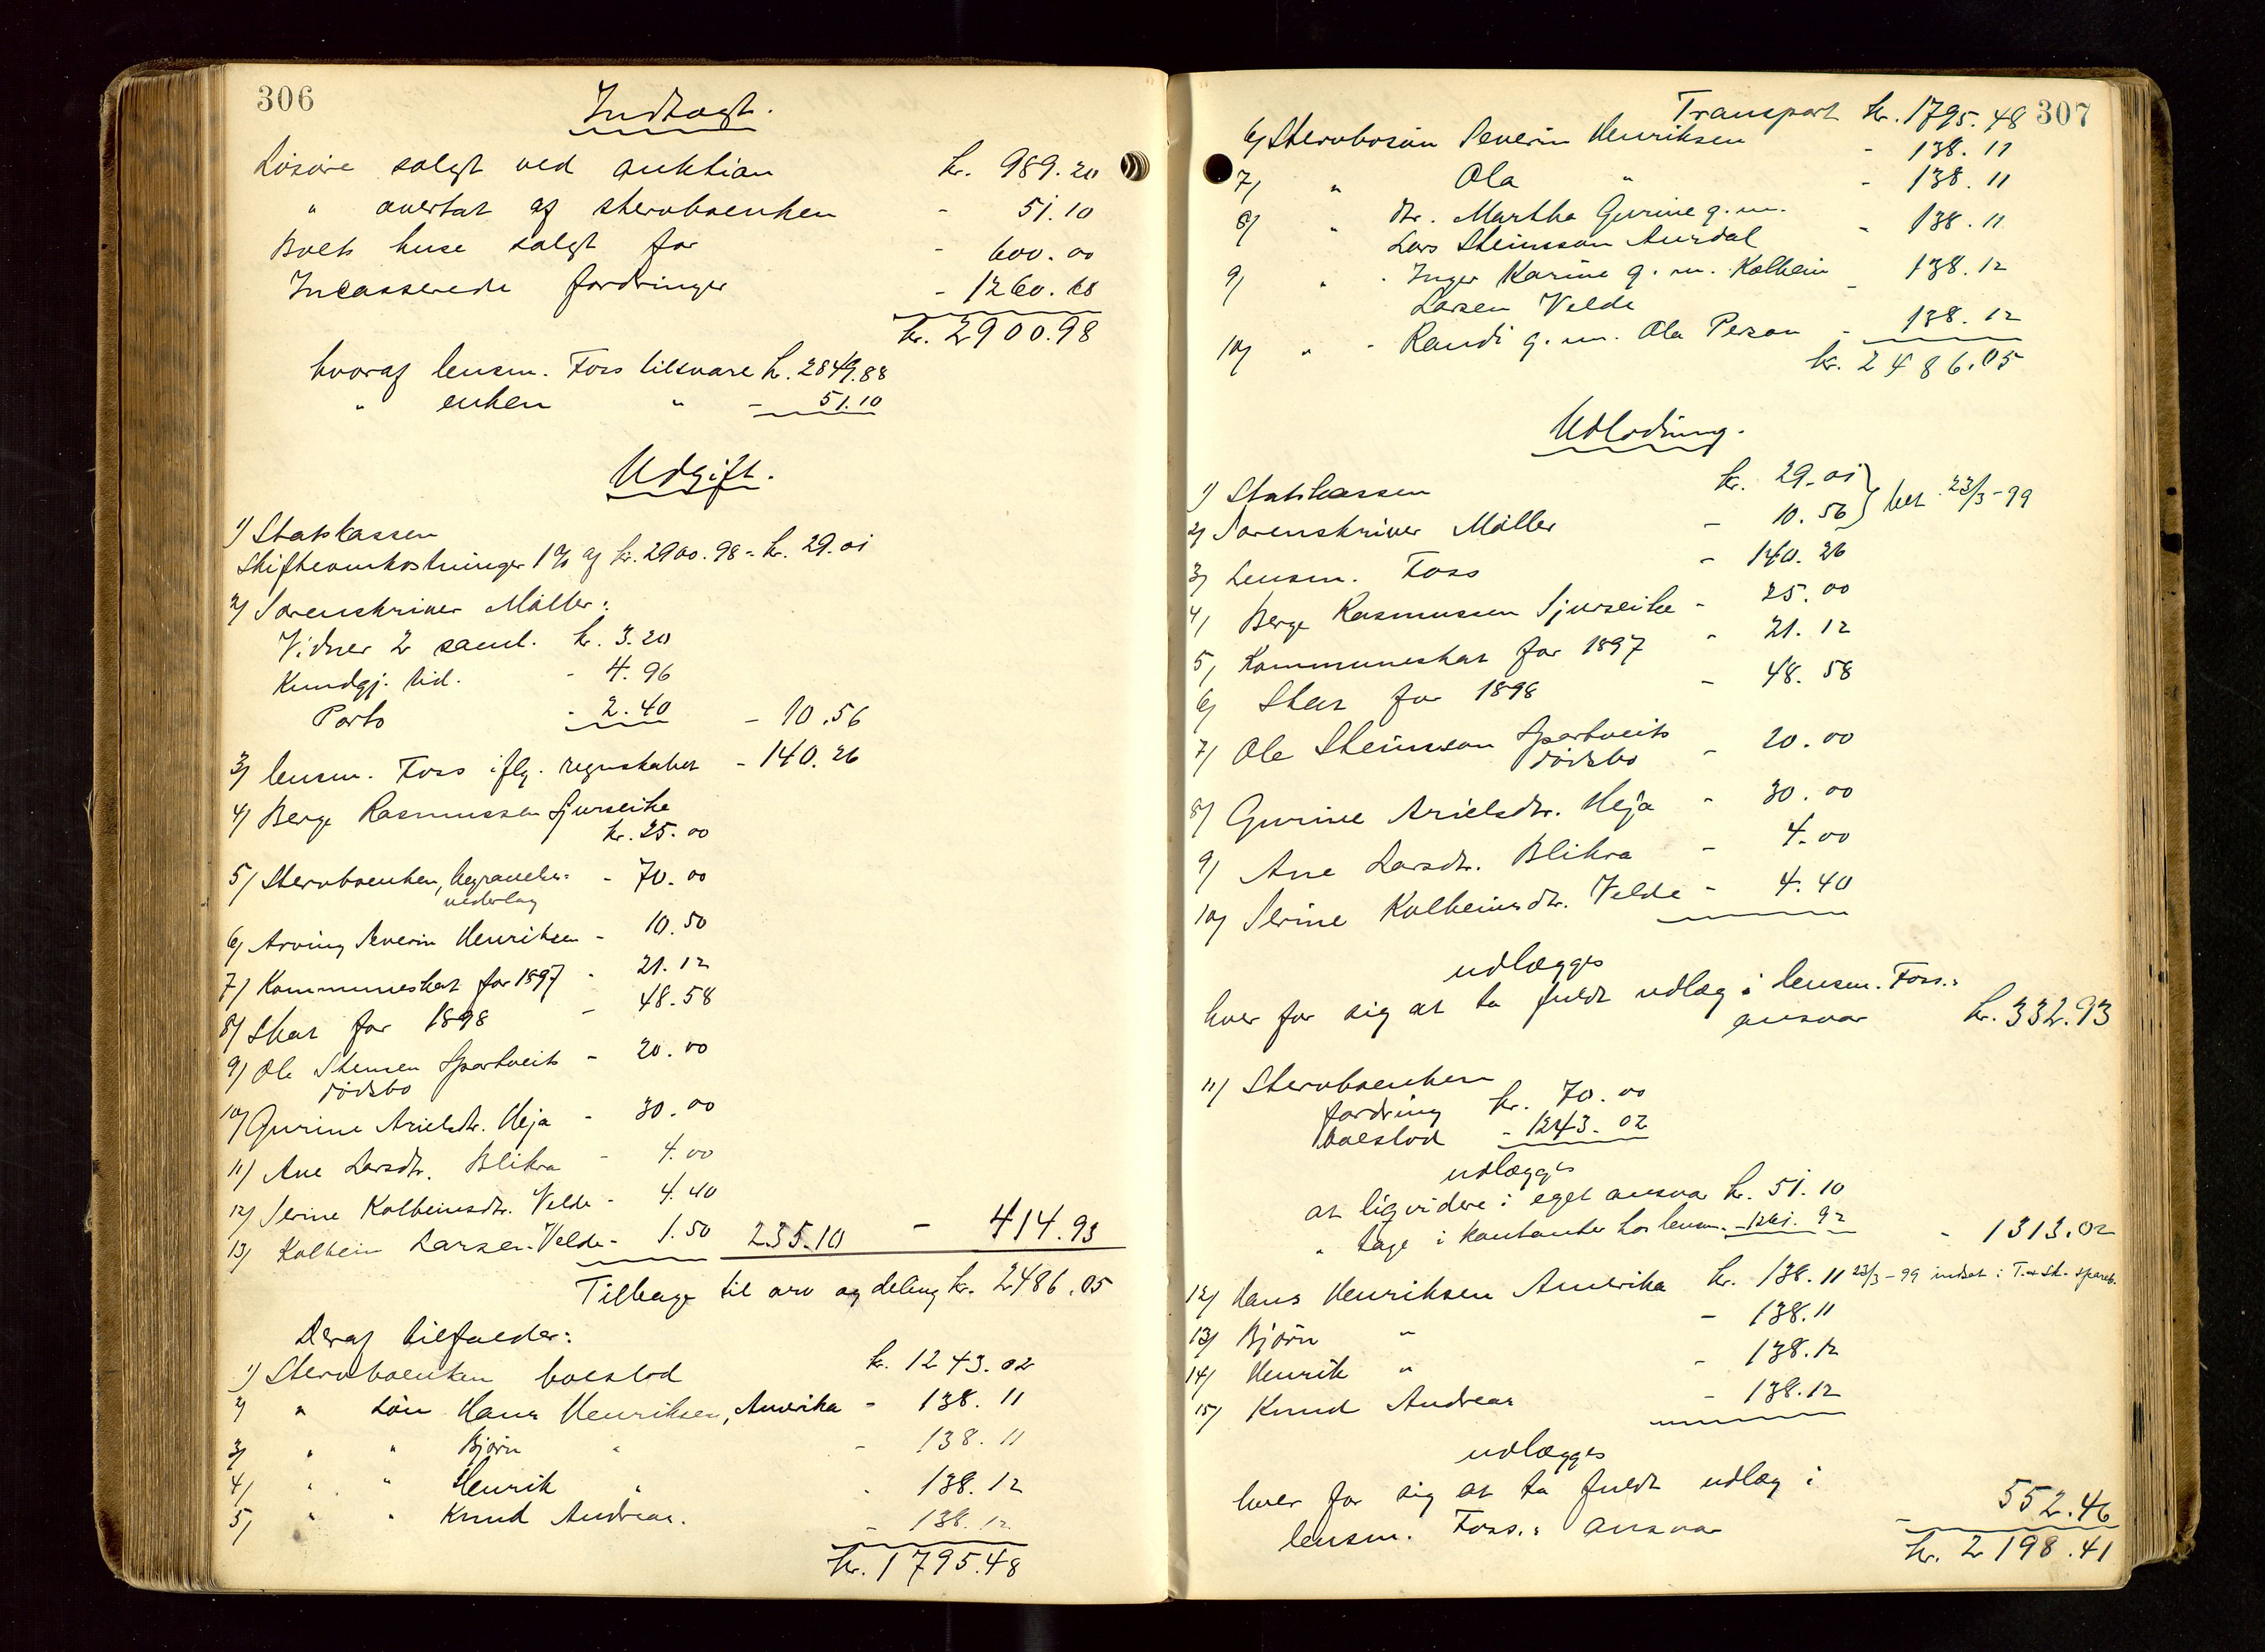 306
Indtægt.
Løsøre solgt ved auktion kr. 989.20
" overtat af stervboenken - 51.10
Boets huse solgt for - 600.00
Incasserede fordringer - 1260.68
kr. 2900.98
hvoraf lensm. Foss tilsvare kr. 2849.88
" enken " - 51.10
Udgift.
1) Statskassen
Skifteomkostninger 1% af kr. 2900.98 = kr. 29.01
2) Sorenskriver Møller:
Vidner 2 saml. kr. 3.20
Kundgj. tid. - 4.96
Porto - 2.40 - 10.56
3) lensm. Foss iflg. regnskabet - 140.26
4) Berge Rasmussen Sjurseike
kr. 25.00
5) Stervboenken, begravelses- - 70.00
vederlag
6) Arving Severin Henriksen - 10.50
7) Kommuneskat for 1897 - 21.12
8) Skat for 1898 - 48.58
9) Ole Stensen Spertveits - 20.00
dødsbo
10) Gurine Arielsdtr. Heja - 30.00
11) Ane Larsdtr. Blikra - 4.00
12) Serine Kolbeinsdtr. Velde - 4.40
13) Kolbein Larsen Velde - 1.50 235.10 - 414.93
Tilbage til arv og deling kr. 2486.05
Deraf tilfalder:
1) Stervboenken boeslod kr. 1243.02
2) " søn Hans Henriksen, Amerika - 138.11
3) " " Bjørn " - 138.11
4) " " Henrik " - 138.12
5) " " Knud Andreas. - 138.12
kr. 1795.48
307
Transport kr. 1795.48
6) Stervbosøn Severin Henriksen - 138.11
7) " Ola " - 138.11
8) " dtr. Martha Gurine g. m.
Lars Steinsson Aurdal - 138.11
9) " - Inger Karine g. m. Kolbein
Larsen Velde - 138.12
10) " - Randi g. m. Ola Person - 138.12
kr. 2486.05
Udlodning.
1) Statskassen kr. 29.01
2) Sorenskriver Møller - 10.56 } bet. 23/3-99
3) Lensm. Foss - 140.26
4) Berge Rasmussen Sjurseike - 25.00
5) Kommuneskat for 1897 - 21.12
6) Skat for 1898 - 48.58
7) Ole Steinsson Spertveits
dødsbo - 20.00
8) Gurine Arielsdtr. Heja - 30.00
9) Ane Larsdtr. Blikra - 4.00
10) Serine Kolbeinsdtr. Velde - 4.40
udlægges
hver for sig at ta fuldt udlæg i lensm. Foss.:
ansvar kr. 332.93
11) Stervboenken
fordring kr. 70.00
boeslod - 1243.02
udlægges
at liqvidere i eget ansvar kr. 51.10
" tage i kontanter hos lensm. - 1261.92 - 1313.02
12) Hans Henriksen Amerika kr. 138.11 23/3-99 indsat i T. & Sk. spareb.
13) Bjørn " - 138.11
14) Henrik " - 138.12
15) Knud Andreas - 138.12
udlægges
hver for sig at ta fuldt udlæg i
lensm. Foss.: ansvar - 552.46
kr. 2198.41